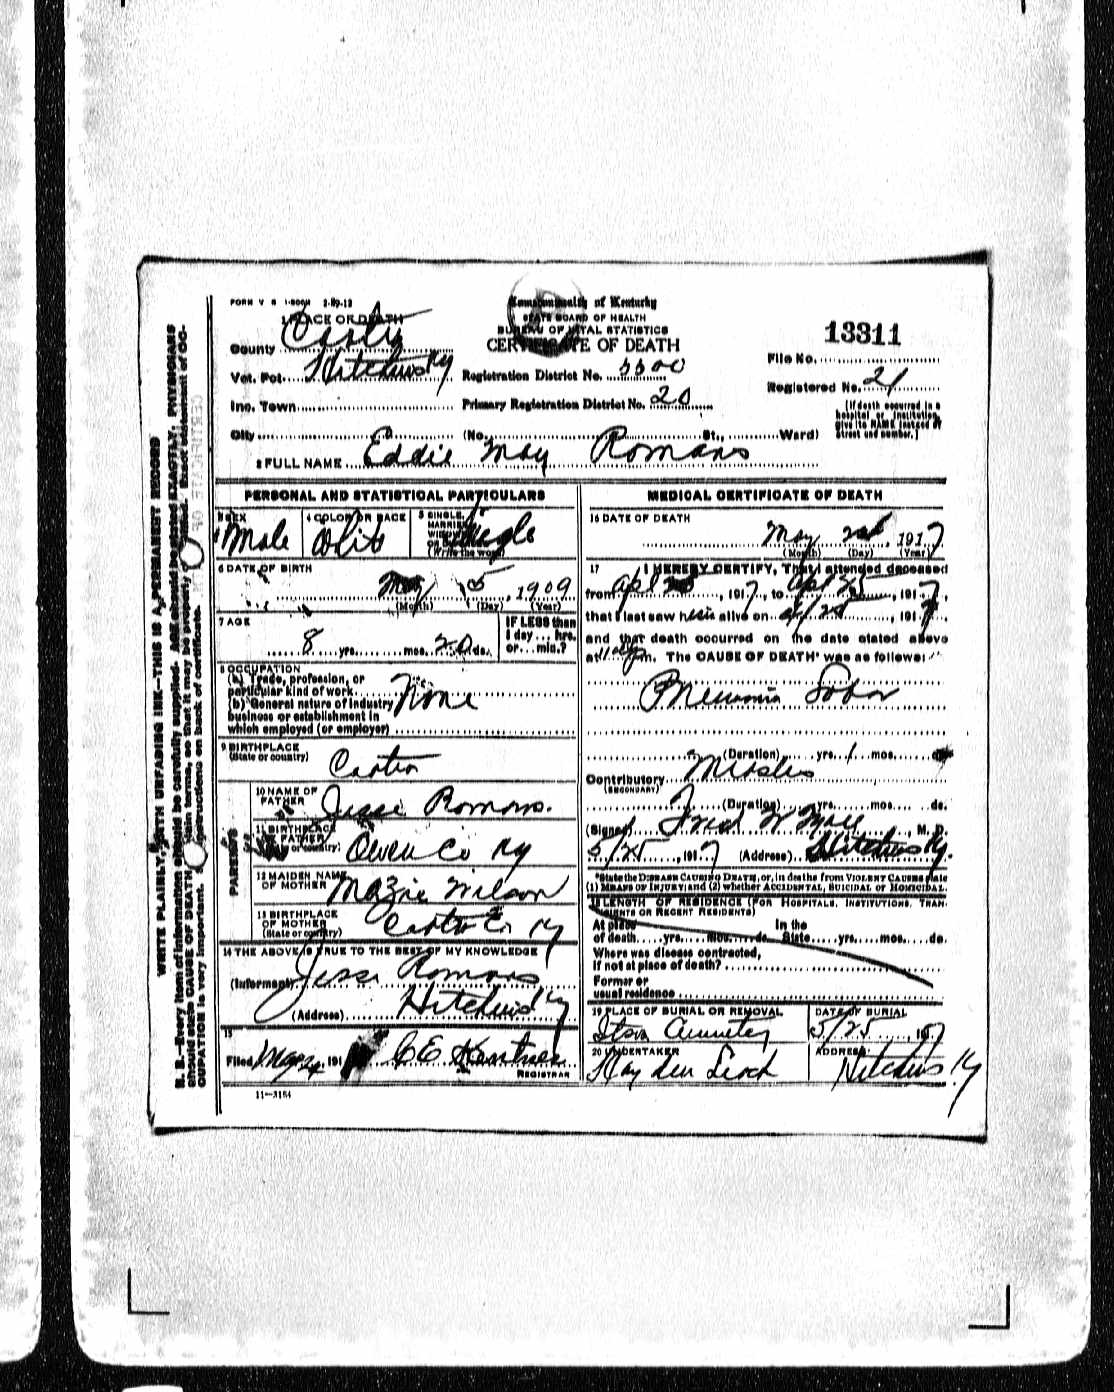 FORM V S 1-500M 2-29-12
Commonwealth of Kentucky
STATE BOARD OF HEALTH
BUREAU OF VITAL STATISTICS
CERTIFICATE OF DEATH
1 PLACE OF DEATH
County Carter
Vot. Pct. Hitchins Ky
Inc. Town
City (No. St., Ward)
Registration District No.
Primary Registration District No. 20
13311
File No.
Registered No. 21
[If death occurred in a
hospital or institution,
give its NAME instead of
street and number.]
2 FULL NAME Eddie May Romans
PERSONAL AND STATISTICAL PARTICULARS
3 SEX
Male
4 COLOR OR RACE
White
5 SINGLE,
MARRIED,
WIDOWED
OR DIVORCED
(Write the word)
Single
6 DATE OF BIRTH
May 5, 1909
(Month) (Day) (Year)
7 AGE
8 yrs. mos. 20 ds.
IF LESS than
1 day... hrs.
or... min.?
8 OCCUPATION
(a) Trade, profession, or
particular kind of work
(b) General nature of industry
business or establishment in
which employed (or employer)
None
9 BIRTHPLACE
(State or country)
Carter
PARENTS
10 NAME OF
FATHER
Jesse Romans.
11 BIRTHPLACE
OF FATHER
(State or country)
Owen Co Ky
12 MAIDEN NAME
OF MOTHER
Mazie Wilson
13 BIRTHPLACE
OF MOTHER
(State or country)
Carter Co Ky
14 THE ABOVE IS TRUE TO THE BEST OF MY KNOWLEDGE
(Informant) Jessi Romans
(Address) Hitchins Ky
15
Filed May 191
REGISTRAR
11—3184
MEDICAL CERTIFICATE OF DEATH
16 DATE OF DEATH
May , 1917
(Month) (Day) (Year)
17 I HEREBY CERTIFY, That I attended deceased
from Apl , 1917, to Apl 25, 1917,
that I last saw h alive on 25, 1917,
and that death occurred on the date stated above
at 11 m. The CAUSE OF DEATH* was as follows:
Pneumonia Lobar
(Duration) yrs. 1 mos.
Contributory Measles
(SECONDARY)
(Duration) yrs. mos. ds.
(Signed) Fred W , M. D.
5/25, 1917 (Address) Hitchins Ky.
*State the DISEASE CAUSING DEATH, or, in deaths from VIOLENT CAUSES state
(1) MEANS OF INJURY; and (2) whether ACCIDENTAL, SUICIDAL or HOMICIDAL.
18 LENGTH OF RESIDENCE (FOR HOSPITALS, INSTITUTIONS, TRAN-
SIENTS OR RECENT RESIDENTS)
At place In the
of death yrs. mos. ds. State yrs. mos. ds.
Where was disease contracted,
if not at place of death?
Former or
usual residence
19 PLACE OF BURIAL OR REMOVAL
DATE OF BURIAL
5/25 1917
20 UNDERTAKER
ADDRESS
Hitchins Ky
WRITE PLAINLY, WITH UNFADING INK—THIS IS A PERMANENT RECORD
N. B.—Every item of information should be carefully supplied. AGE should be stated EXACTLY. PHYSICIANS
should state CAUSE OF DEATH in plain terms, so that it may be properly classified. Exact statement of OC-
CUPATION is very important. See instructions on back of certificate.